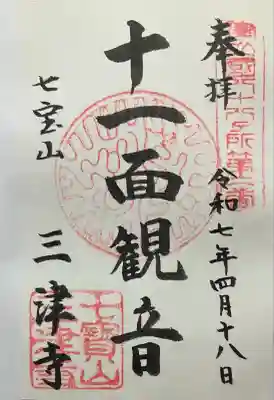 奉拝
令和七年四月十八日
十一面観音
七宝山
三津寺
七寳山